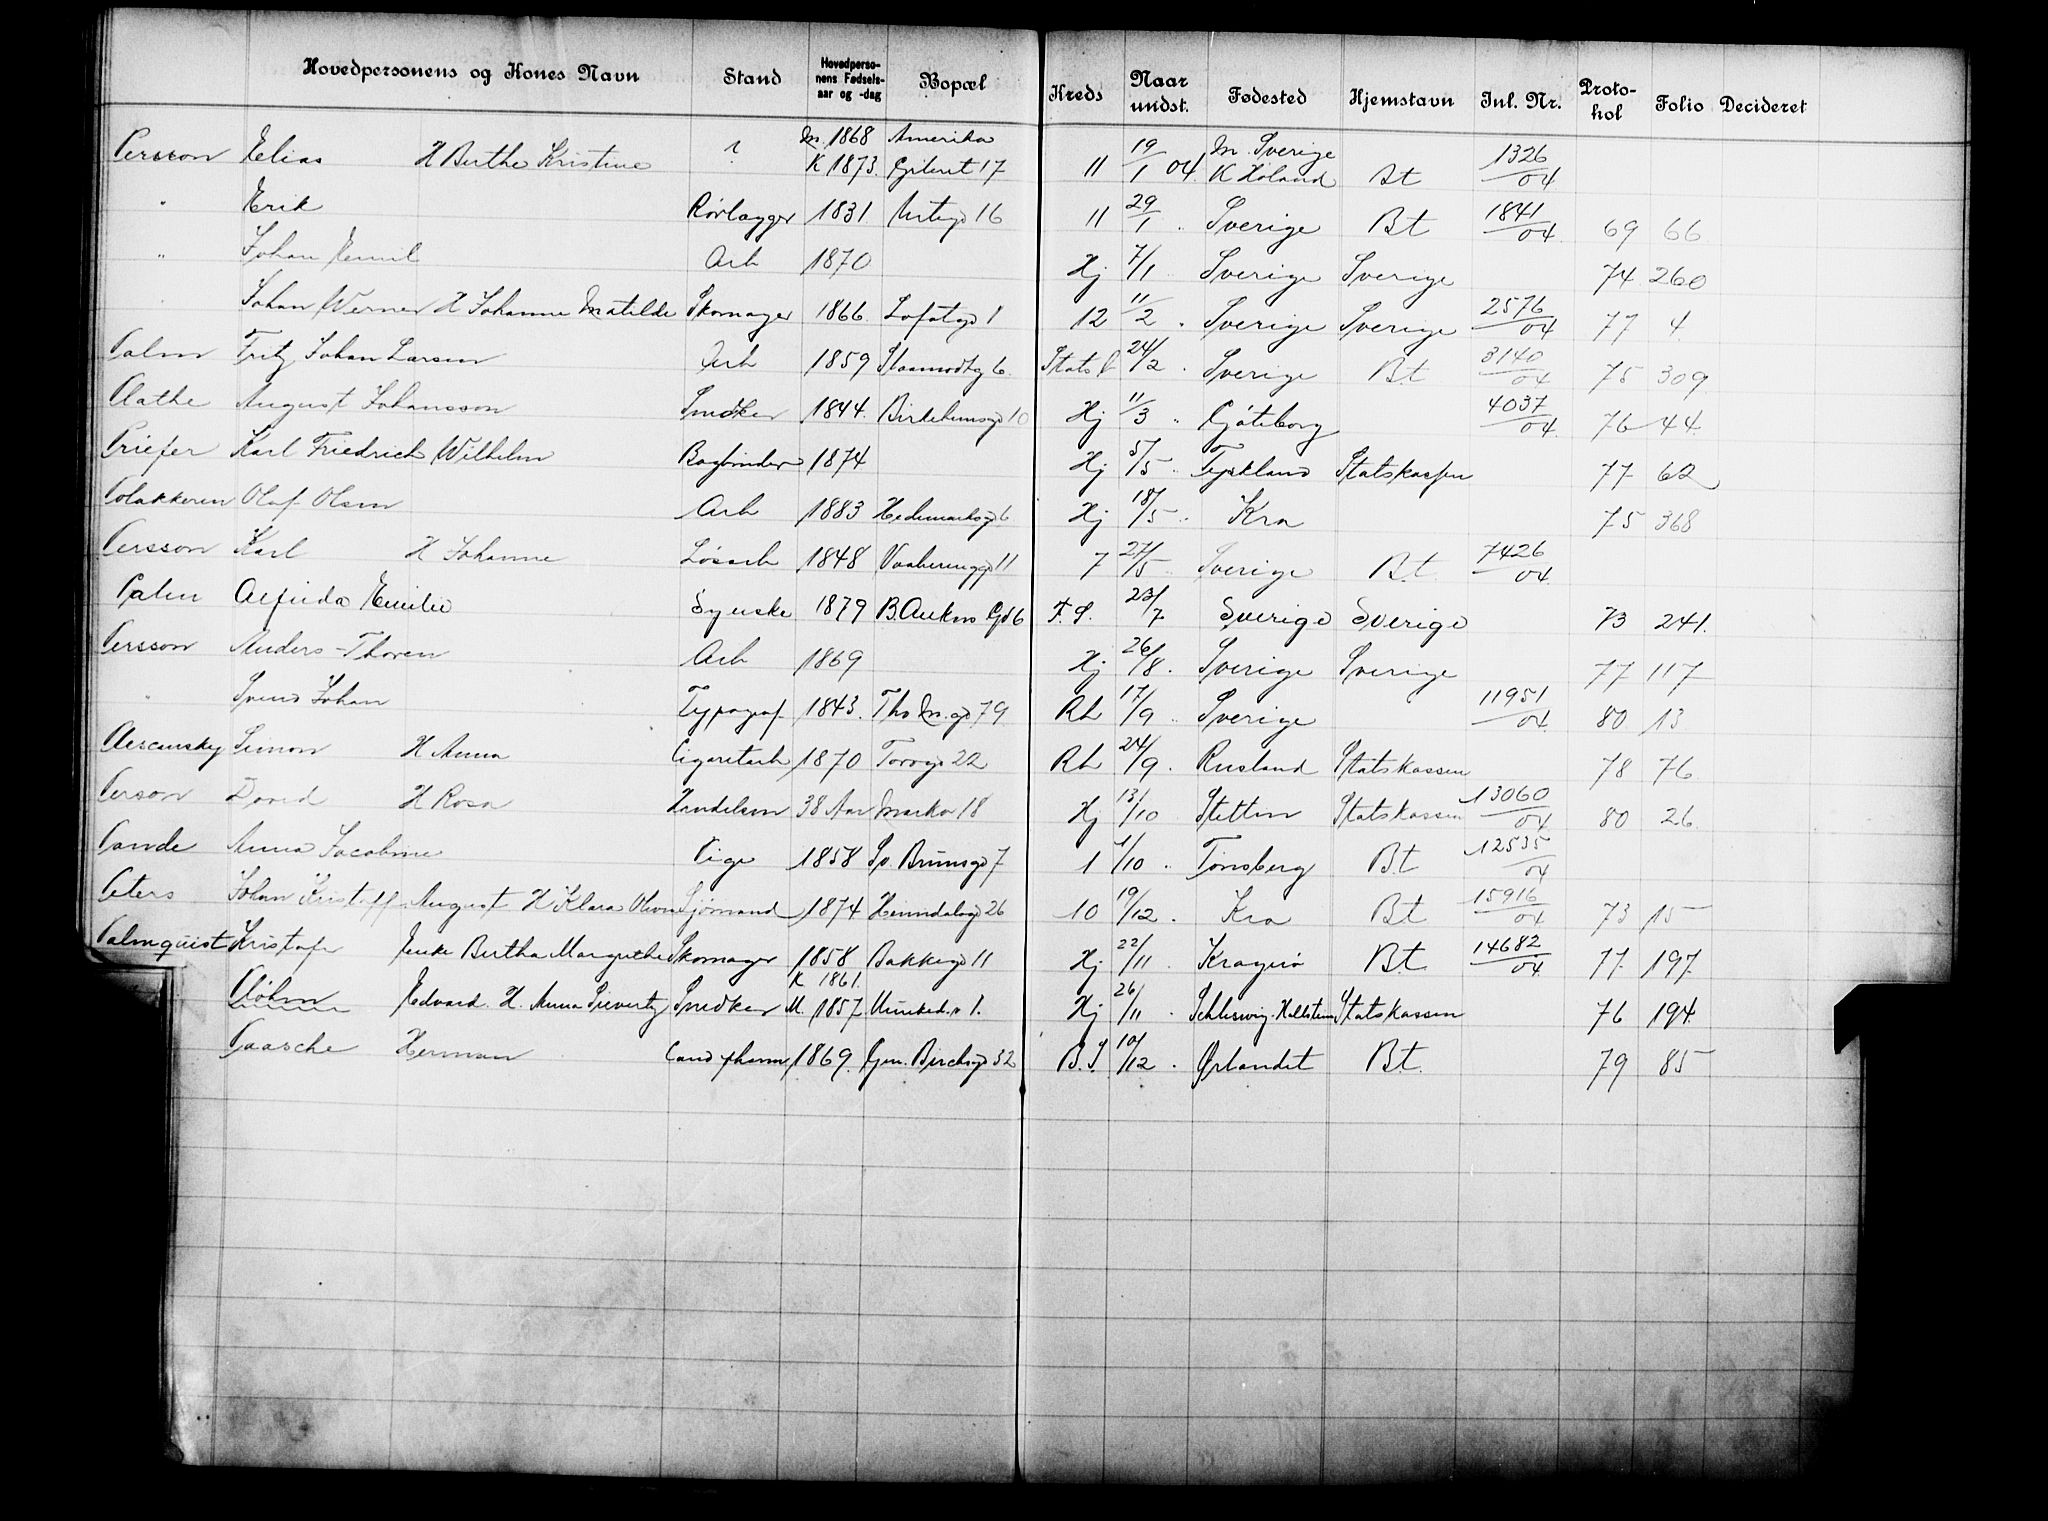 Hovedpersonens og Kones Navn Stand Hovedperso-nens Fødsels-aar og -dag Bopæl Kreds Naar undst. Fødested Hjemstavn Inl. Nr. Proto-kol Folio Decideret
Persson Elias H Birthe Kristine ? M. 1868 K 1873. Amerika 17 11 19/1 04. M. Sverige K Høland Bt 1326/04
" Erik Rørlægger 1831 Urtegd 16 11 29/1 " Sverige Bt 1841/04 69 66
" Johan Emil Arb 1870 Hj 7/1 " Sverige Sverige 74 260
" Johan Werner H Johanne Matilde Skomager 1866. Lofotgd 1 12 11/2 " Sverige Sverige 2576/04 77 4
Palm Fritz Johan Larsen Arb 1859 6. 24/2 " Sverige Bt 3140/04 75 309
Plathe August Johansson Snedker 1844. Birkelunsgd 10 Hj 11/3 " Gøteborg 4037/04 76 44
Priefer Karl Friedrich Wilhelm Bogbinder 1874 Hj 5/5 " Tyskland Statskassen 77 62
Polakkeren Olaf Olsen Arb 1883 Hedemarksgd 6 Hj 18/5 " Kra 75 368
Persson Karl H Johanne Løsarb 1848 Vaaleringgd 11 7 27/5 Sverige Bt 7426/04
Palm Alfrida Emilie Syerske 1879 B. Ankers Gd 6 F. S. 23/7 Sverige Sverige 73 241.
Persson Anders Thoren Arb 1869 Hj 26/8. Sverige Sverige 77 117
" Svend Johan Typograf 1843. Ths M. gd 79 Rh 17/9 " Sverige 11951/04 80 13
Simon H Anna Cigaretarb 1870 Torvgd 22 Rh 24/9. Rusland Statskassen 78 76
Person David H Rosa Handelsm 38 Aar Markv 18 Hj 13/10 Stettin Statskassen 13060/04 80 26
Pande Anna Jacobine Pige 1858 Sv. Brunsgd 7 1 1/10 " Tønsberg Bt 12535/04
Peters Johan Kristoff August H Klara Olsen Sjømand 1874 Heimdalsgd 26 10 19/12. Kra Bt 15916/04 73 15
Palmquist Kristofer Enke Bertha Margrethe Skomager 1858 K 1861. Bakkegd 11 Hj 22/11 Kragerø Bt 14682/04 77 197
Pöhm Edvard. H. Anna Sieverty Snedker M. 1857 1. Hj 26/11. Schleswig-Hollstein Statskassen 76 194
Paasche Herman Cand pharm 1869. Gen. Birchsgd 32 B. S. 10/12. Ørlandet Bt. 79 85